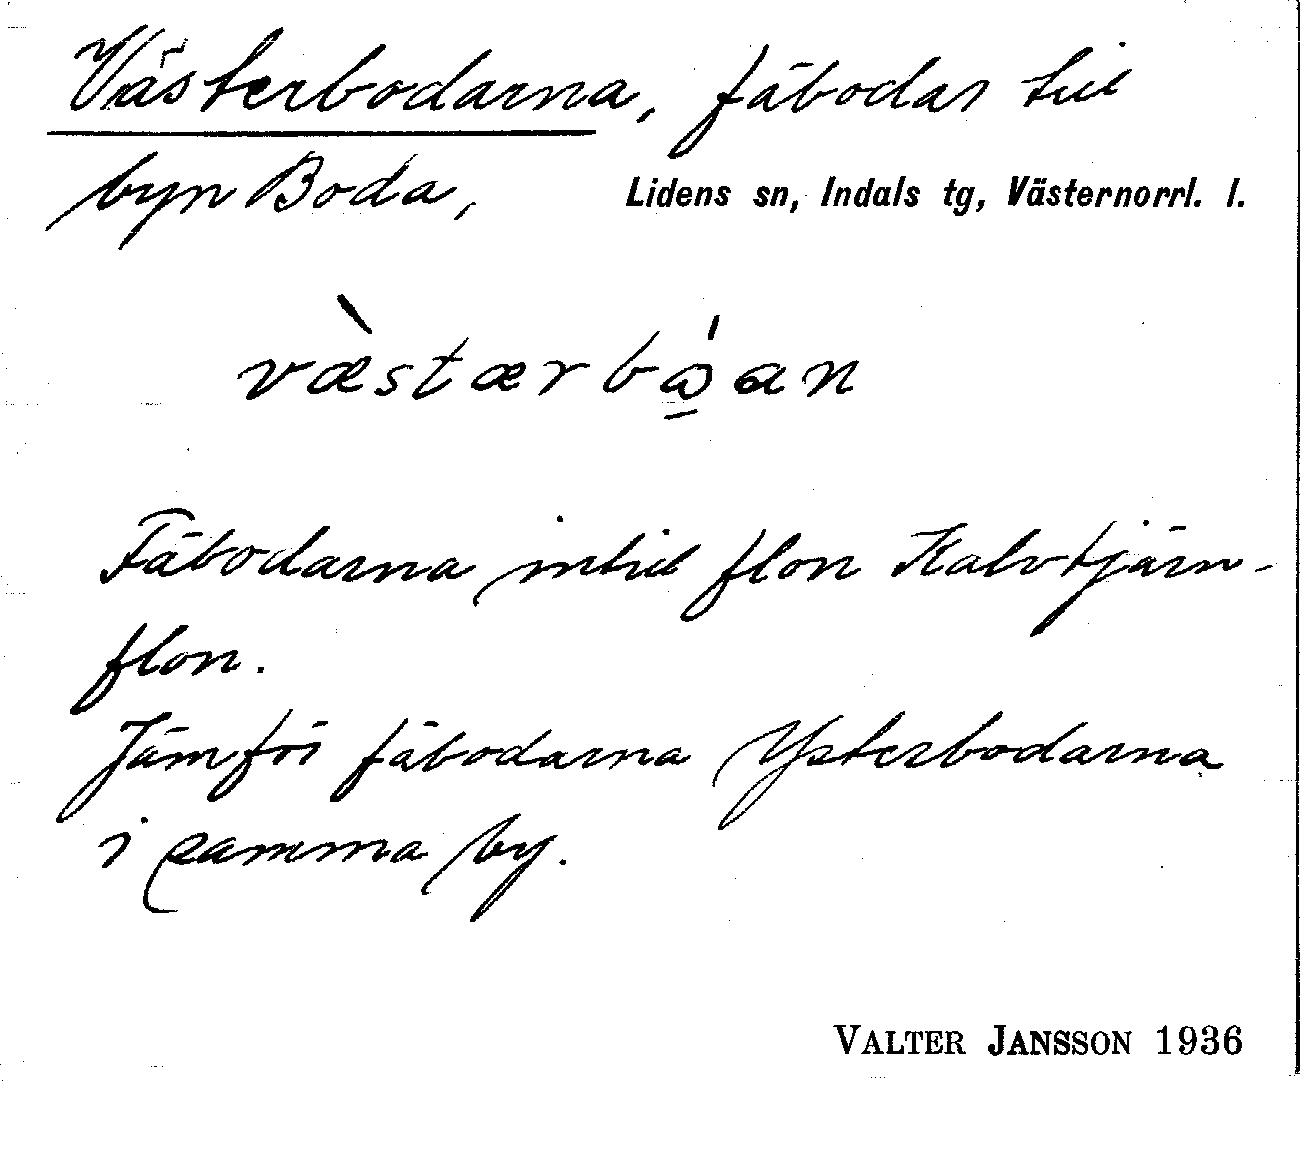 Västerbodarna, fäbodar till
byn Boda, Lidens sn, Indals tg, Västernorrl. l.
væ̀stærbṓan
Fäbodarna intill flon Kalvtjärn-
flon.
Jämför fäbodarna Ysterbodarna
i samma by.
VALTER JANSSON 1936